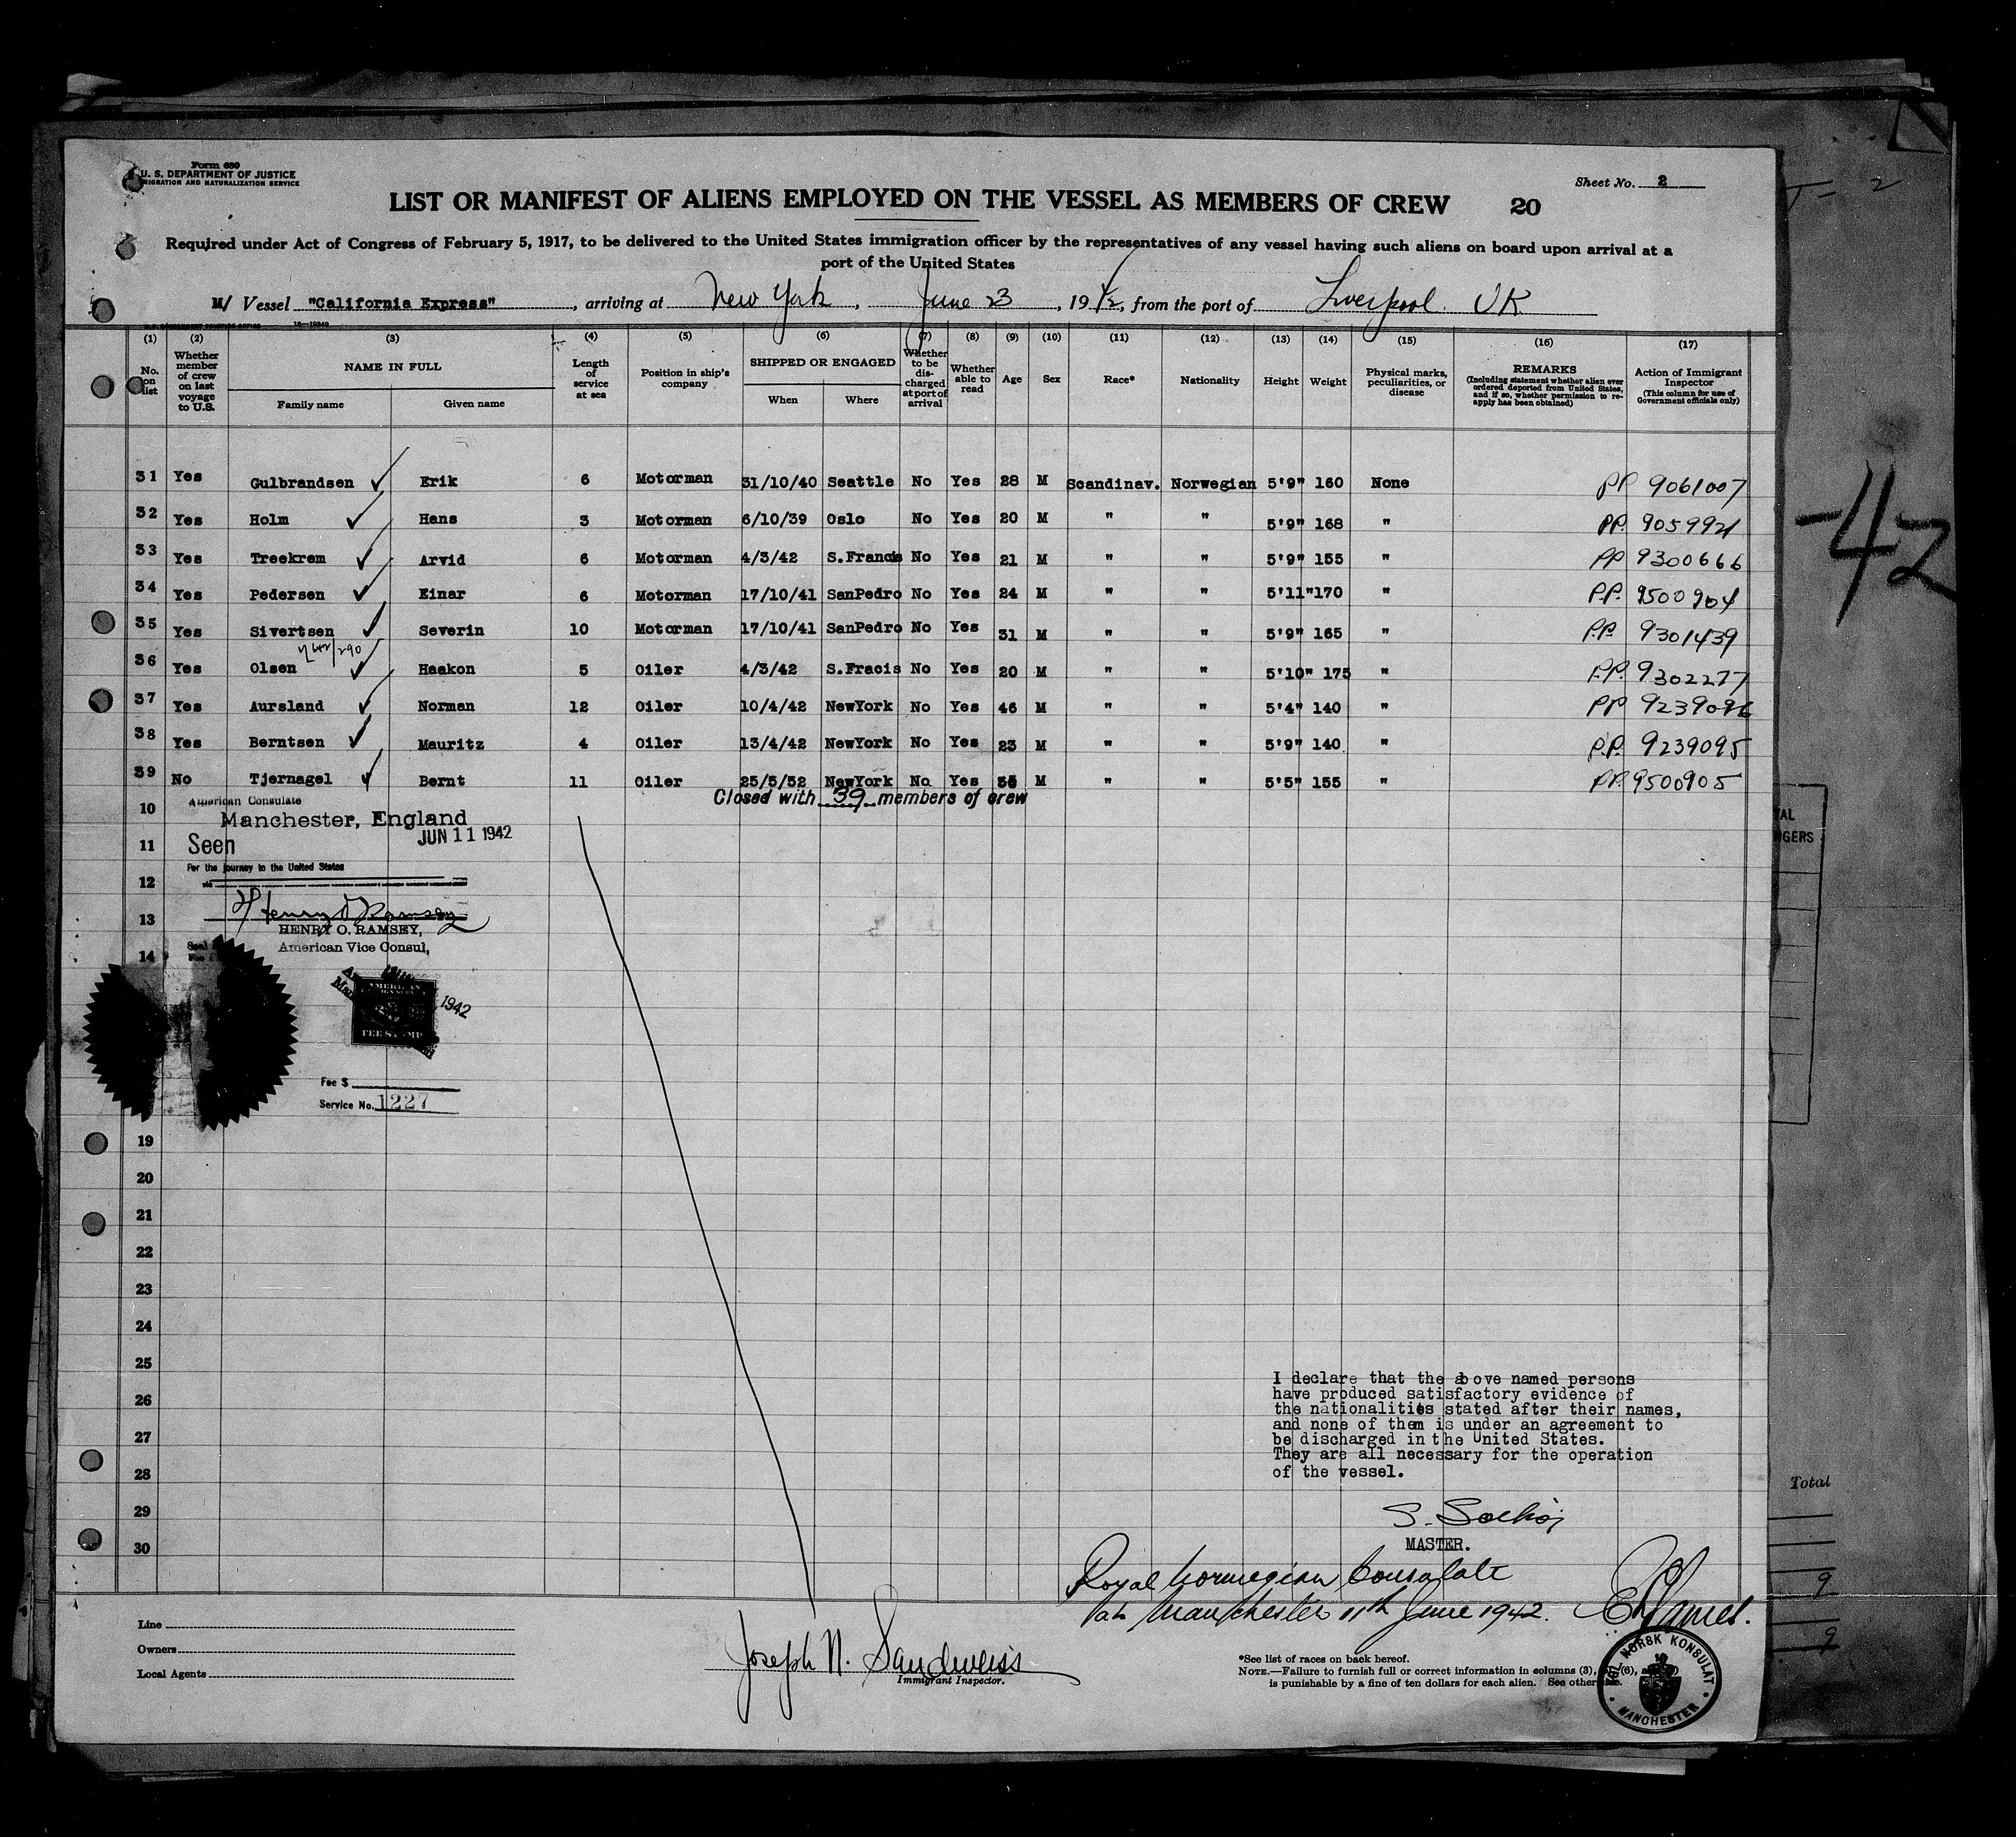 Form 680
U. S. DEPARTMENT OF JUSTICE
IMMIGRATION AND NATURALIZATION SERVICE
Sheet No. 2
LIST OR MANIFEST OF ALIENS EMPLOYED ON THE VESSEL AS MEMBERS OF CREW 20
Required under Act of Congress of February 5, 1917, to be delivered to the United States immigration officer by the representatives of any vessel having such aliens on board upon arrival at a
port of the United States
M/ Vessel "California Express", arriving at New York, June 23, 1942, from the port of Liverpool UK
(1) (2) (3) (4) (5) (6) (7) (8) (9) (10) (11) (12) (13) (14) (15) (16) (17)
No. on list
Whether member of crew on last voyage to U.S.
NAME IN FULL
Family name Given name
Length of service at sea
Position in ship's company
SHIPPED OR ENGAGED
When Where
Whether to be discharged at port of arrival
Whether able to read
Age
Sex
Race*
Nationality
Height
Weight
Physical marks, peculiarities, or disease
REMARKS
(Including statement whether alien ever ordered deported from United States, and if so, whether permission to reapply has been obtained)
Action of Immigrant Inspector
(This column for use of Government officials only)
31 Yes Gulbrandsen Erik 6 Motorman 31/10/40 Seattle No Yes 28 M Scandinav. Norwegian 5'9" 160 None PP 9061007
32 Yes Holm Hans 3 Motorman 6/10/39 Oslo No Yes 20 M " " 5'9" 168 " PP. 9059921
33 Yes Treekrem Arvid 6 Motorman 4/3/42 S.Francis No Yes 21 M " " 5'9" 155 " PP 9300666
34 Yes Pedersen Einar 6 Motorman 17/10/41 SanPedro No Yes 24 M " " 5'11" 170 " P.P. 9500904
35 Yes Sivertsen Severin 10 Motorman 17/10/41 SanPedro No Yes 31 M " " 5'9" 165 " P.P. 9301439
36 Yes Olsen Haakon 5 Oiler 4/3/42 S.Fracis No Yes 20 M " " 5'10" 175 " P.P. 9302277
37 Yes Aursland Norman 12 Oiler 10/4/42 NewYork No Yes 46 M " " 5'4" 140 " PP 9239096
38 Yes Berntsen Mauritz 4 Oiler 13/4/42 NewYork No Yes 23 M " " 5'9" 140 " P.P. 9239095
39 No Tjernagel Bernt 11 Oiler 25/5/52 NewYork No Yes M " " 5'5" 155 " PP. 9500905
Closed with 39 members of crew
10
11
12
13
14
19
20
21
22
23
24
25
26
27
28
29
30
American Consulate
Manchester, England
Seen JUN 11 1942
For the journey to the United States
via
Henry O Ramsey
HENRY O. RAMSEY,
American Vice Consul,
1942
AMERICAN
FEE STAMP
Fee $
Service No. 1227
I declare that the above named persons
have produced satisfactory evidence of
the nationalities stated after their names,
and none of them is under an agreement to
be discharged in the United States.
They are all necessary for the operation
of the vessel.
MASTER.
Royal Norwegian Consulate
Manchester 11th June 1942.
Line
Owners
Local Agents
Joseph N. Sandweiss
Immigrant Inspector.
*See list of races on back hereof.
NOTE.—Failure to furnish full or correct information in columns (3), (6),
is punishable by a fine of ten dollars for each alien. See other
NORSK KONSULAT
MANCHESTER
-42
Total
9
9